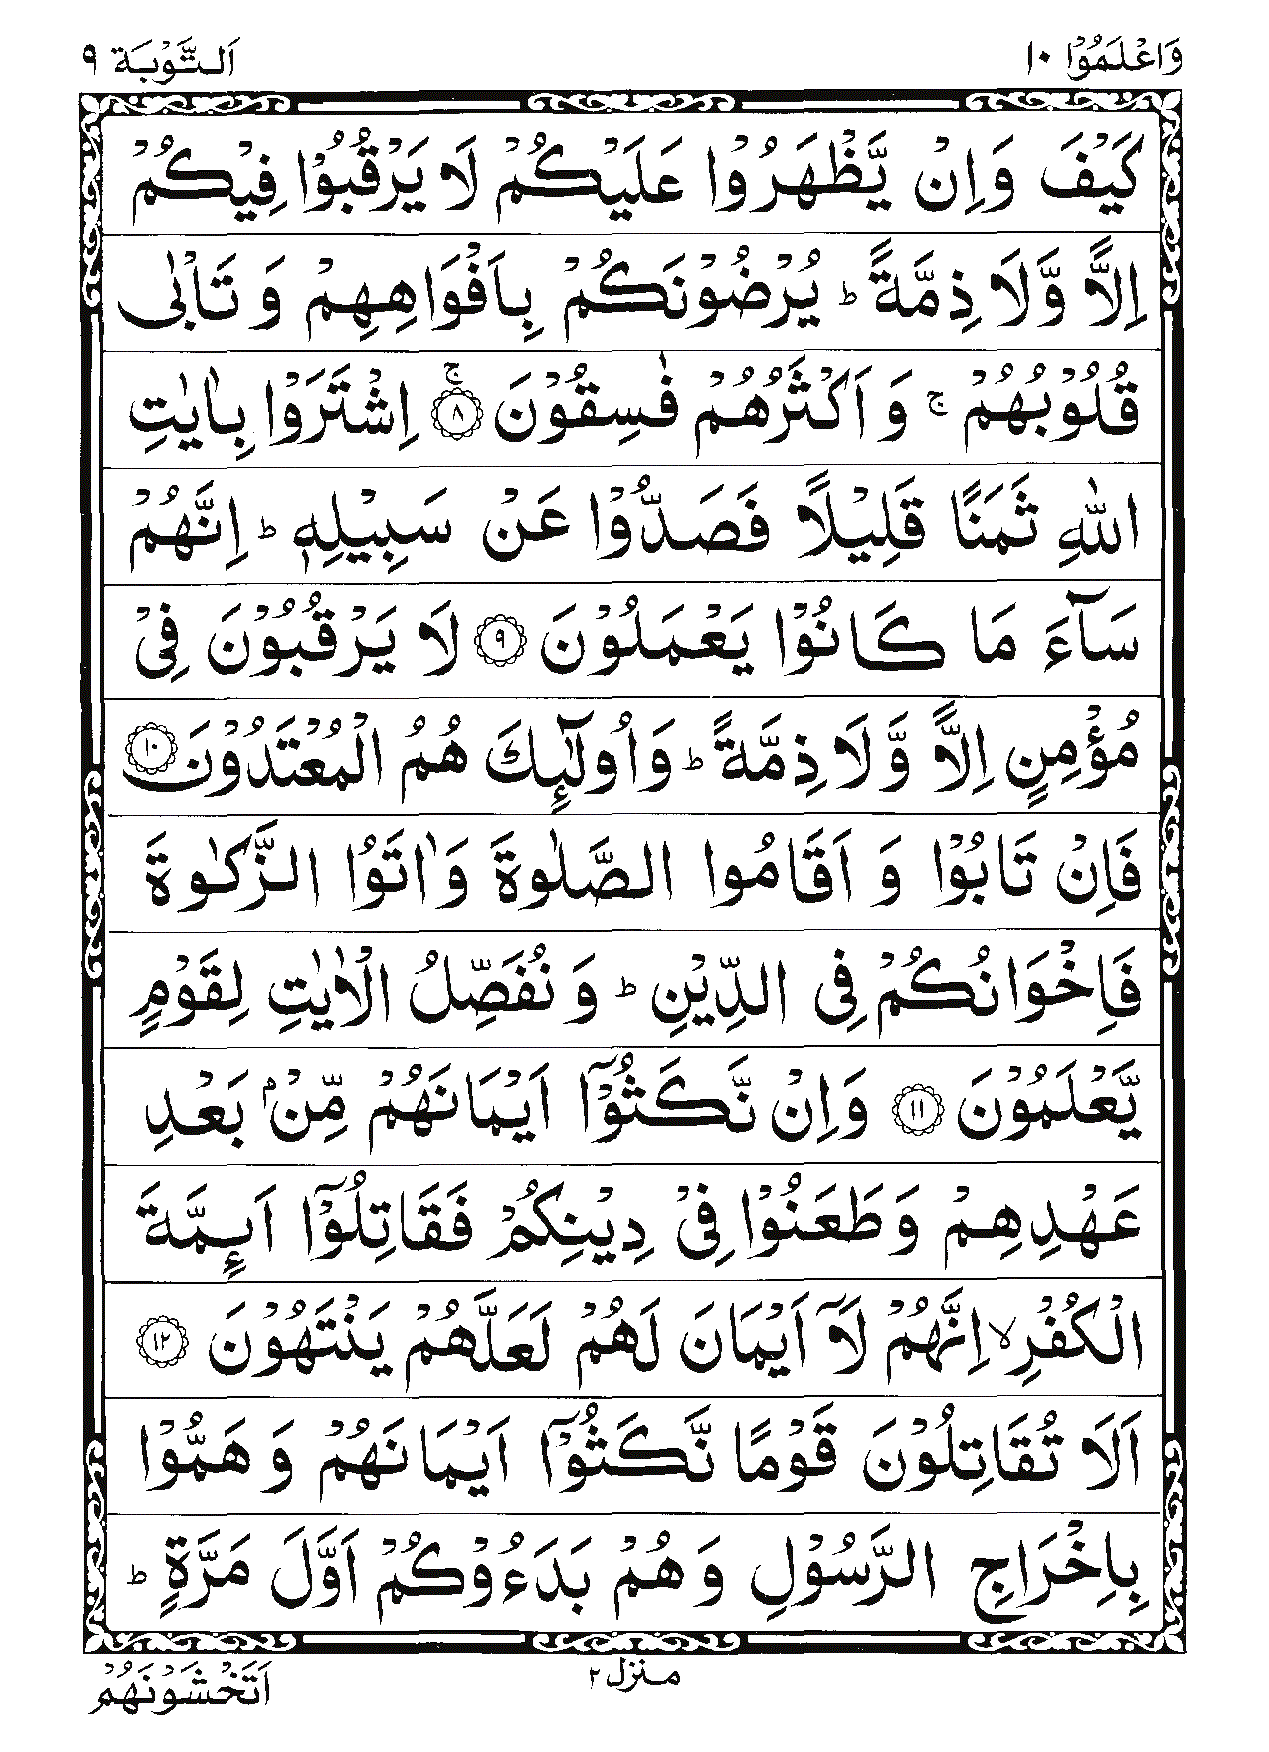 وَاعْلَمُوْۤا ١٠ اَلتَّوْبَة ٩
كَيْفَ وَاِنْ يَّظْهَرُوْا عَلَيْكُمْ لَا يَرْقُبُوْا فِيْكُمْ
اِلًّا وَّلَا ذِمَّةً ؕ يُرْضُوْنَكُمْ بِاَفْوَاهِهِمْ وَ تَاْبٰى
قُلُوْبُهُمْ ۚ وَ اَكْثَرُهُمْ فٰسِقُوْنَ ۚ ۝٨ اِشْتَرَوْا بِاٰيٰتِ
اللّٰهِ ثَمَنًا قَلِيْلًا فَصَدُّوْا عَنْ سَبِيْلِهٖ ؕ اِنَّهُمْ
سَآءَ مَا كَانُوْا يَعْمَلُوْنَ ۝٩ لَا يَرْقُبُوْنَ فِيْ
مُؤْمِنٍ اِلًّا وَّلَا ذِمَّةً ؕ وَاُولٰٓئِكَ هُمُ الْمُعْتَدُوْنَ ۝١٠
فَاِنْ تَابُوْا وَ اَقَامُوا الصَّلٰوةَ وَاٰتَوُا الزَّكٰوةَ
فَاِخْوَانُكُمْ فِى الدِّيْنِ ؕ وَ نُفَصِّلُ الْاٰيٰتِ لِقَوْمٍ
يَّعْلَمُوْنَ ۝١١ وَاِنْ نَّكَثُوْۤا اَيْمَانَهُمْ مِّنْۢ بَعْدِ
عَهْدِهِمْ وَطَعَنُوْا فِيْ دِيْنِكُمْ فَقَاتِلُوْۤا اَئِمَّةَ
الْكُفْرِ ۙ اِنَّهُمْ لَاۤ اَيْمَانَ لَهُمْ لَعَلَّهُمْ يَنْتَهُوْنَ ۝١٢
اَلَا تُقَاتِلُوْنَ قَوْمًا نَّكَثُوْۤا اَيْمَانَهُمْ وَ هَمُّوْا
بِاِخْرَاجِ الرَّسُوْلِ وَ هُمْ بَدَءُوْكُمْ اَوَّلَ مَرَّةٍ ؕ
منزل ٢
اَتَخْشَوْنَهُمْ